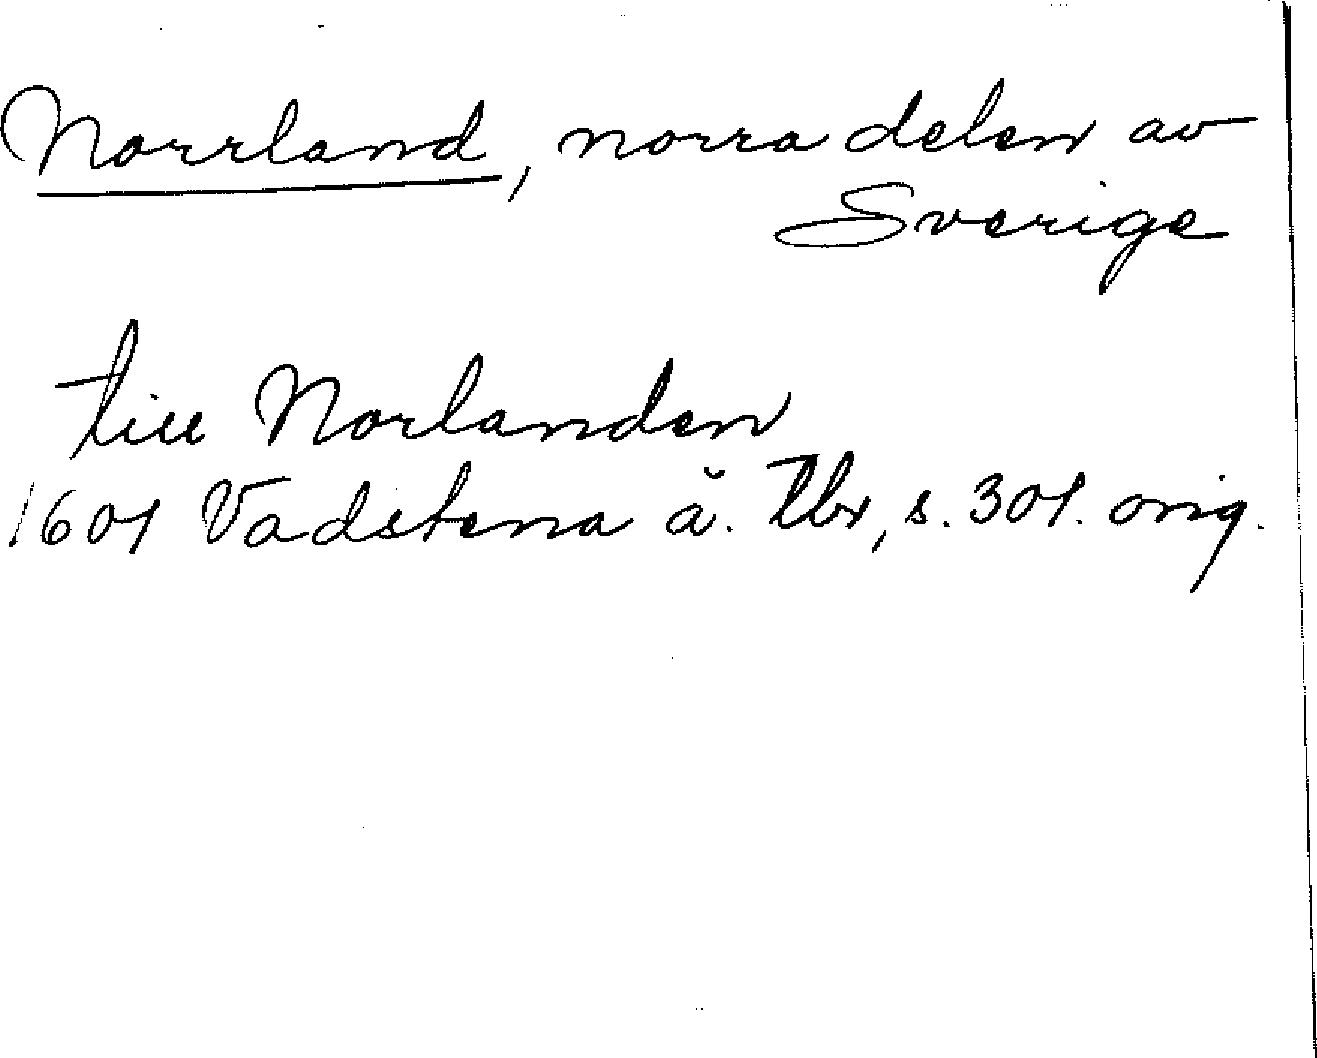 Norrland, norra delen av
Sverige
till Norlanden
1601 Vadstena ä. tbr, s. 301. orig.